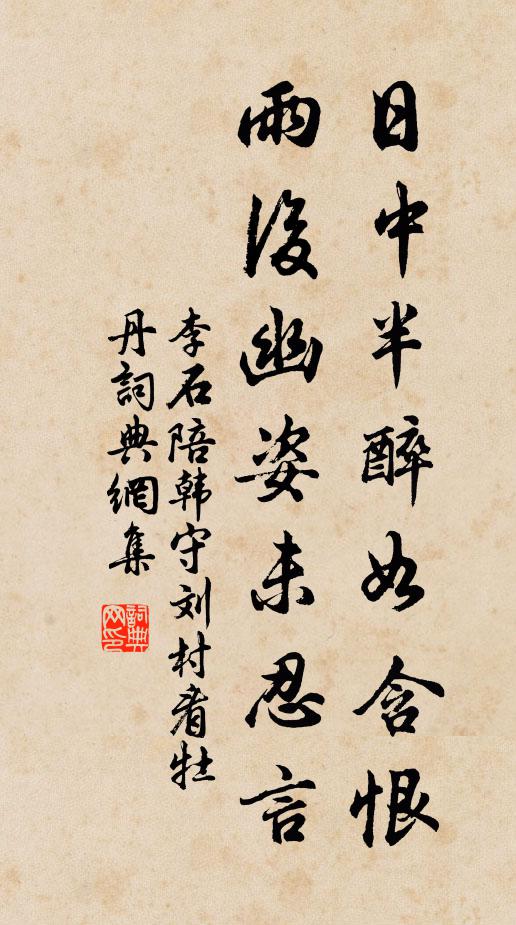 日中半醉如含恨
雨後幽姿未忍言
李石陪韩守刘村看牡
丹詞典網集
詞典网印